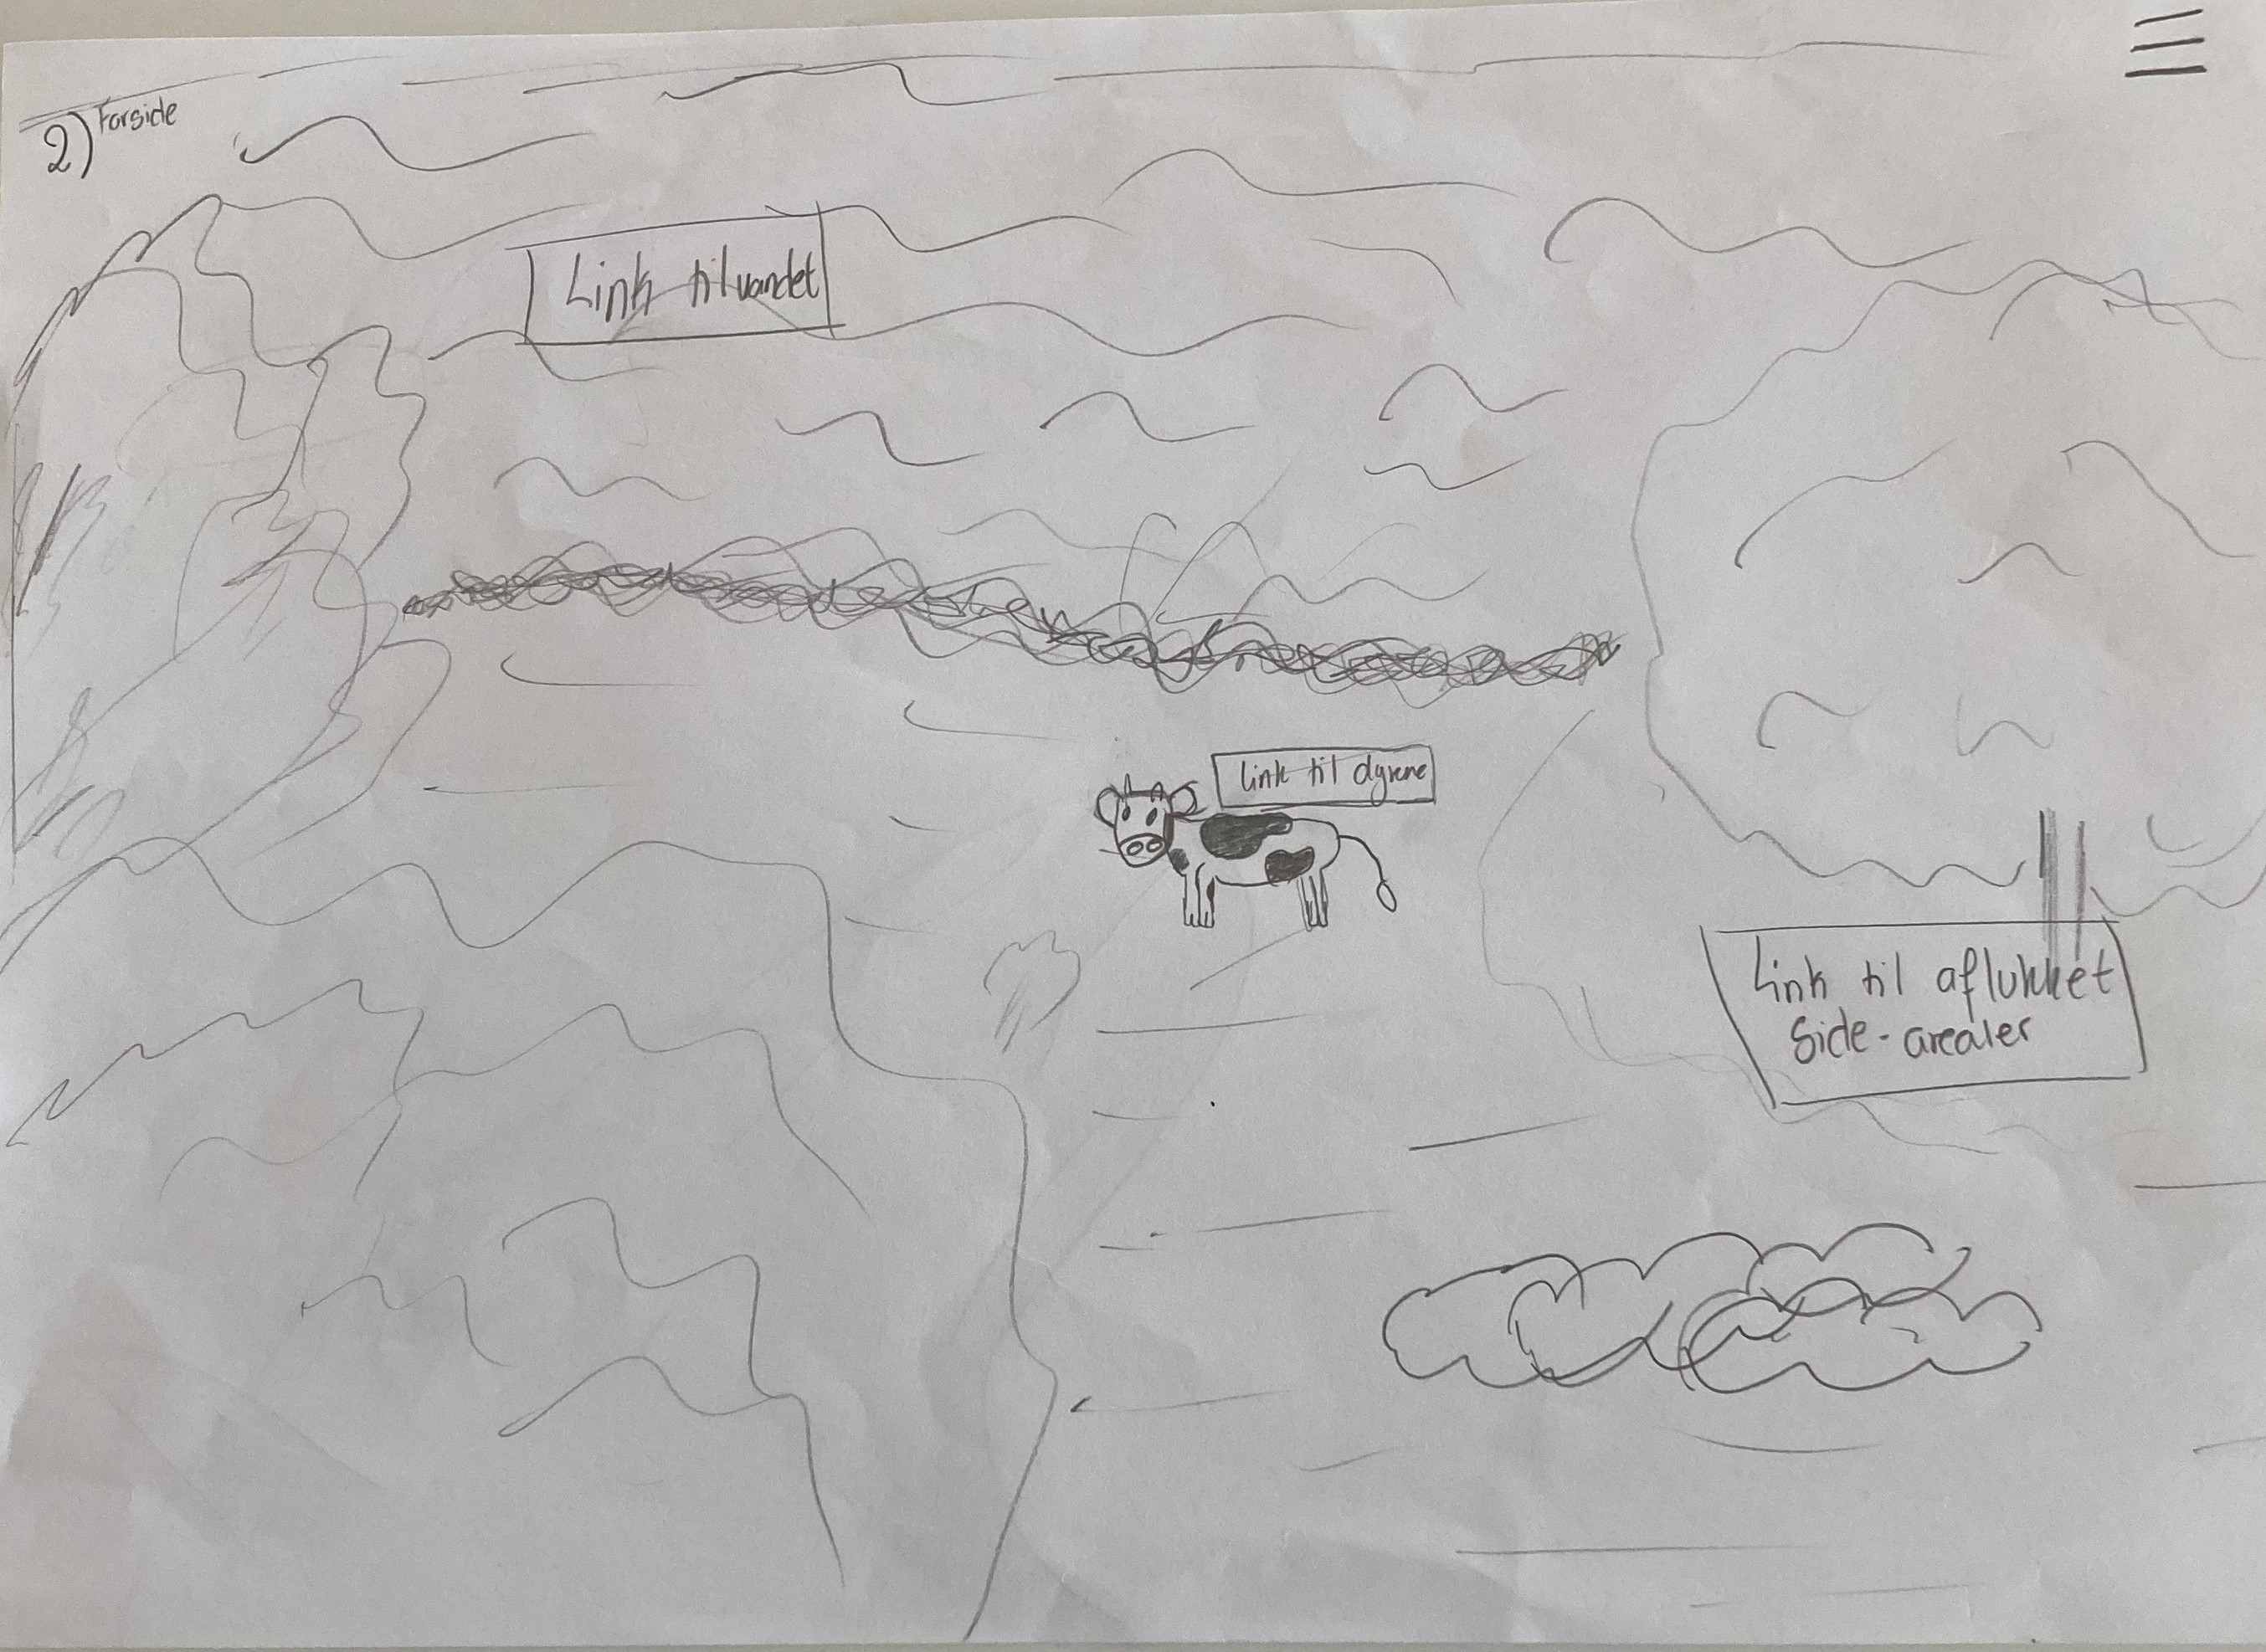 2) Forside
Link til vandet
Link til dyrene
Link til aflukket
Side-arealer